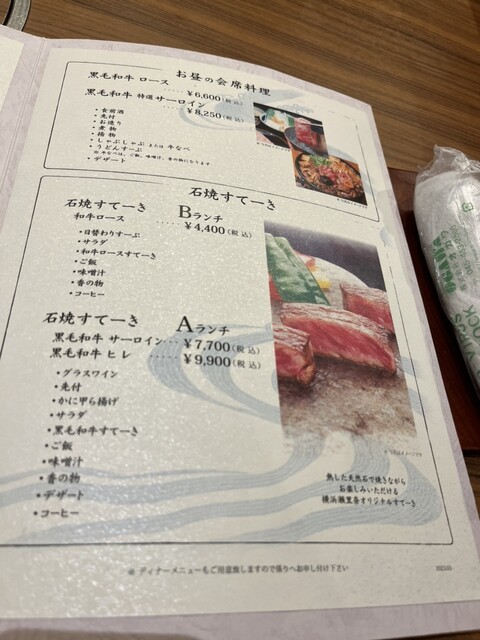 お昼の会席料理
黒毛和牛 ロース ¥6,600(税込)
黒毛和牛 特選サーロイン ¥8,250(税込)
・食前酒
・先付
・お造り
・煮物
・揚物
・しゃぶしゃぶ または 牛なべ
・うどんすーぷ
※牛なべは、ご飯、味噌汁、香の物になります
・デザート
石焼すてーき
石焼すてーき Bランチ
和牛ロース ¥4,400(税込)
・日替わりすーぷ
・サラダ
・和牛ロースすてーき
・ご飯
・味噌汁
・香の物
・コーヒー
石焼すてーき Aランチ
黒毛和牛 サーロイン… ¥7,700(税込)
黒毛和牛 ヒレ ····· ¥9,900(税込)
・グラスワイン
・先付
・かに甲ら揚げ
・サラダ
・黒毛和牛すてーき
・ご飯
・味噌汁
・香の物
・デザート
・コーヒー
熱した天然石で焼きながら
お楽しみいただける
横浜瀬里奈オリジナルすてーき
※ ディナーメニューもご用意致しますので係りへお申し付け下さい